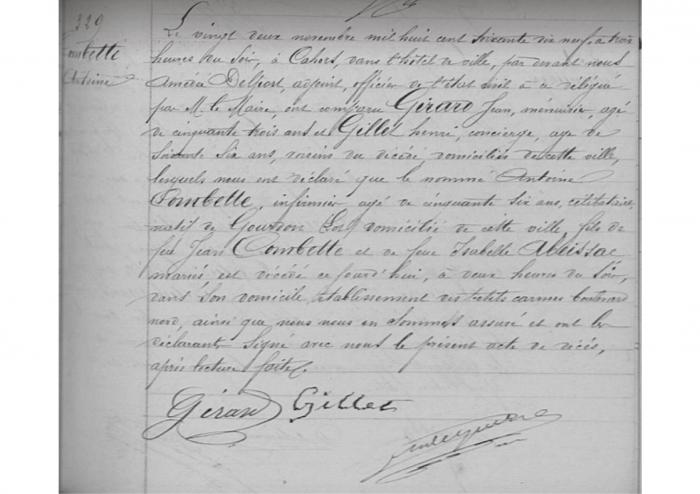 329
Combette
Antoine
Le vingt deux novembre mil huit cent soixante dix neuf, à trois
heures du soir, à Cahors, dans l'hôtel de ville, par devant nous
Amédée Delport, adjoint, officier de l'état civil à ce délégué
par M. le Maire, ont comparu Girard Jean, menuisier, agé
de cinquante trois ans et Gillet henri, concierge, age de
soixante six ans, voisins du décédé domiciliés de cette ville,
lesquels nous ont déclaré que le nommé Antoine
Combette, infirmier agé de cinquante six ans, célibataire,
natif de Gourdon Lot, domicilié de cette ville, fils de
feu Jean Combette et de feue Isabelle
mariés, est décédé ce jourd'hui, à deux heures du soir,
dans son domicile, établissement des petits carmes boulevard
nord, ainsi que nous nous en sommes assuré et ont les
déclarants signé avec nous le présent acte de décès,
après lecture faite.
Gérard Gillet